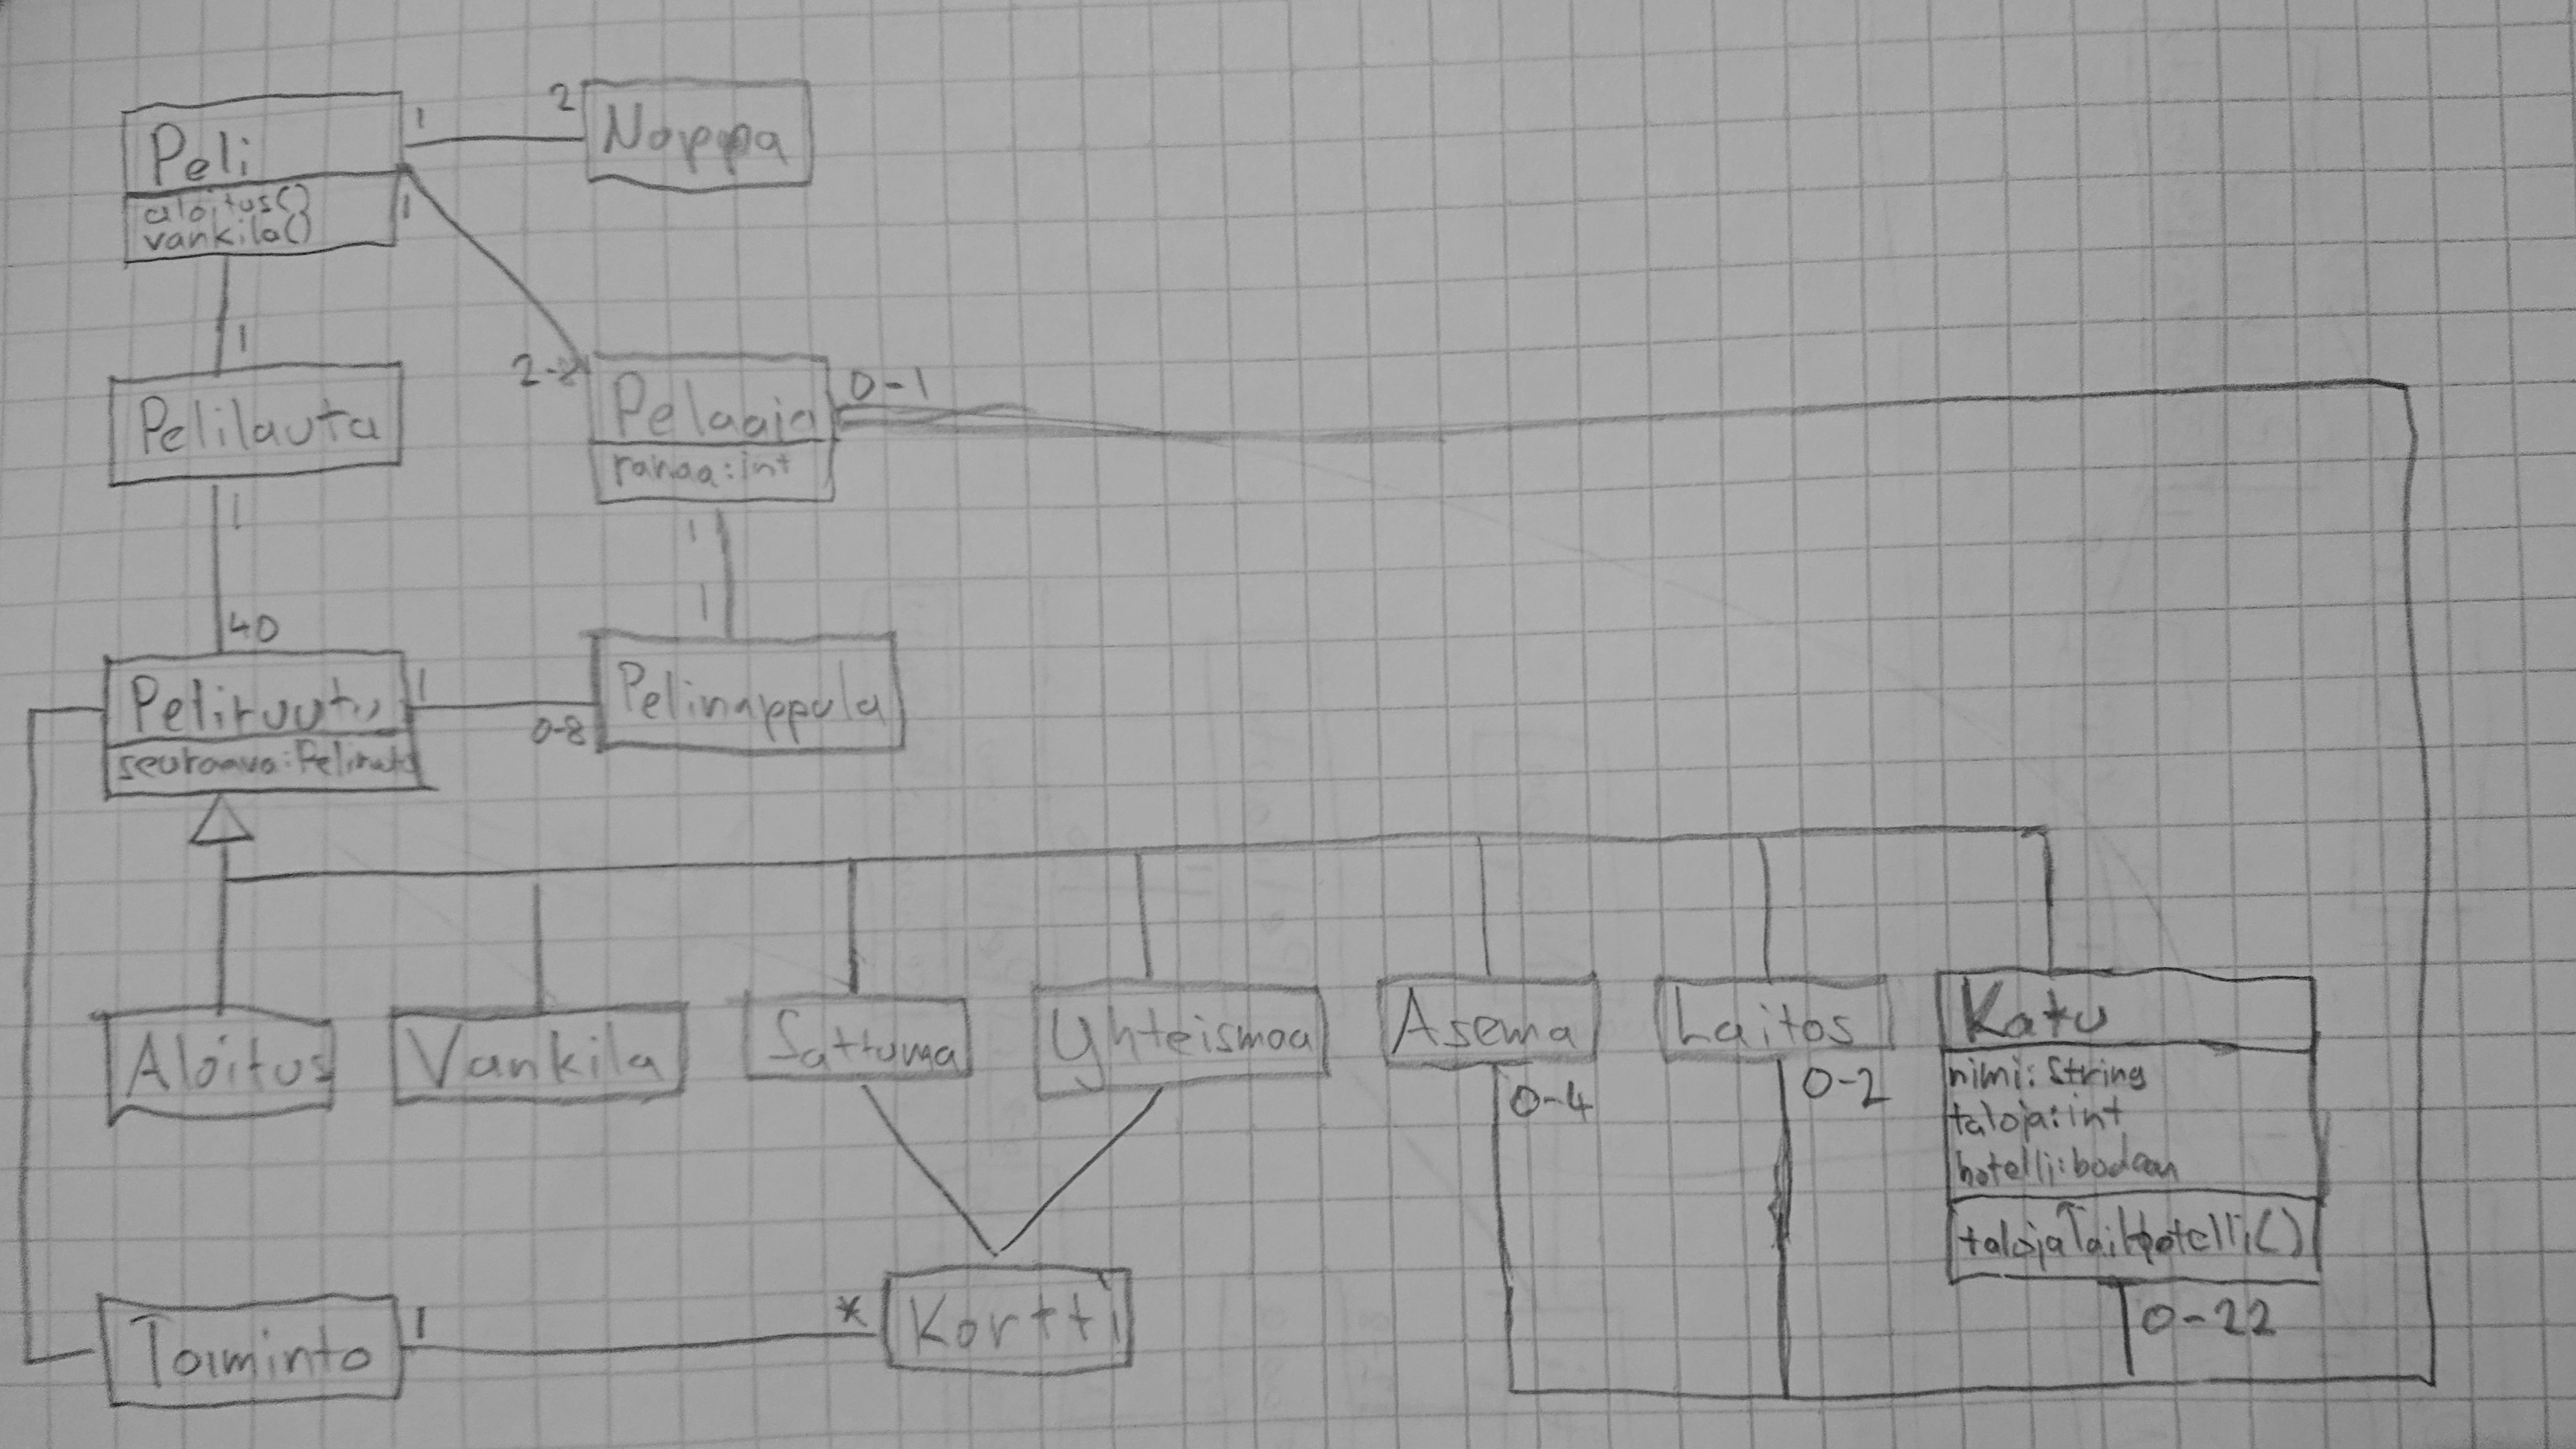 Peli
aloitus()
vankila()
1
2
Noppa
1
1
2-8
Pelilauta
1
Pelaaja
rahaa:int
0-1
1
1
40
Peliruutu
seuraava:Peliruutu
1
0-8
Pelinappula
Aloitus
Vankila
Sattuma
Yhteismaa
Asema
0-4
Laitos
0-2
Katu
nimi: String
taloja:int
hotelli:boolean
talojaTaiHotelli()
0-22
Toiminto
1
*
Kortti